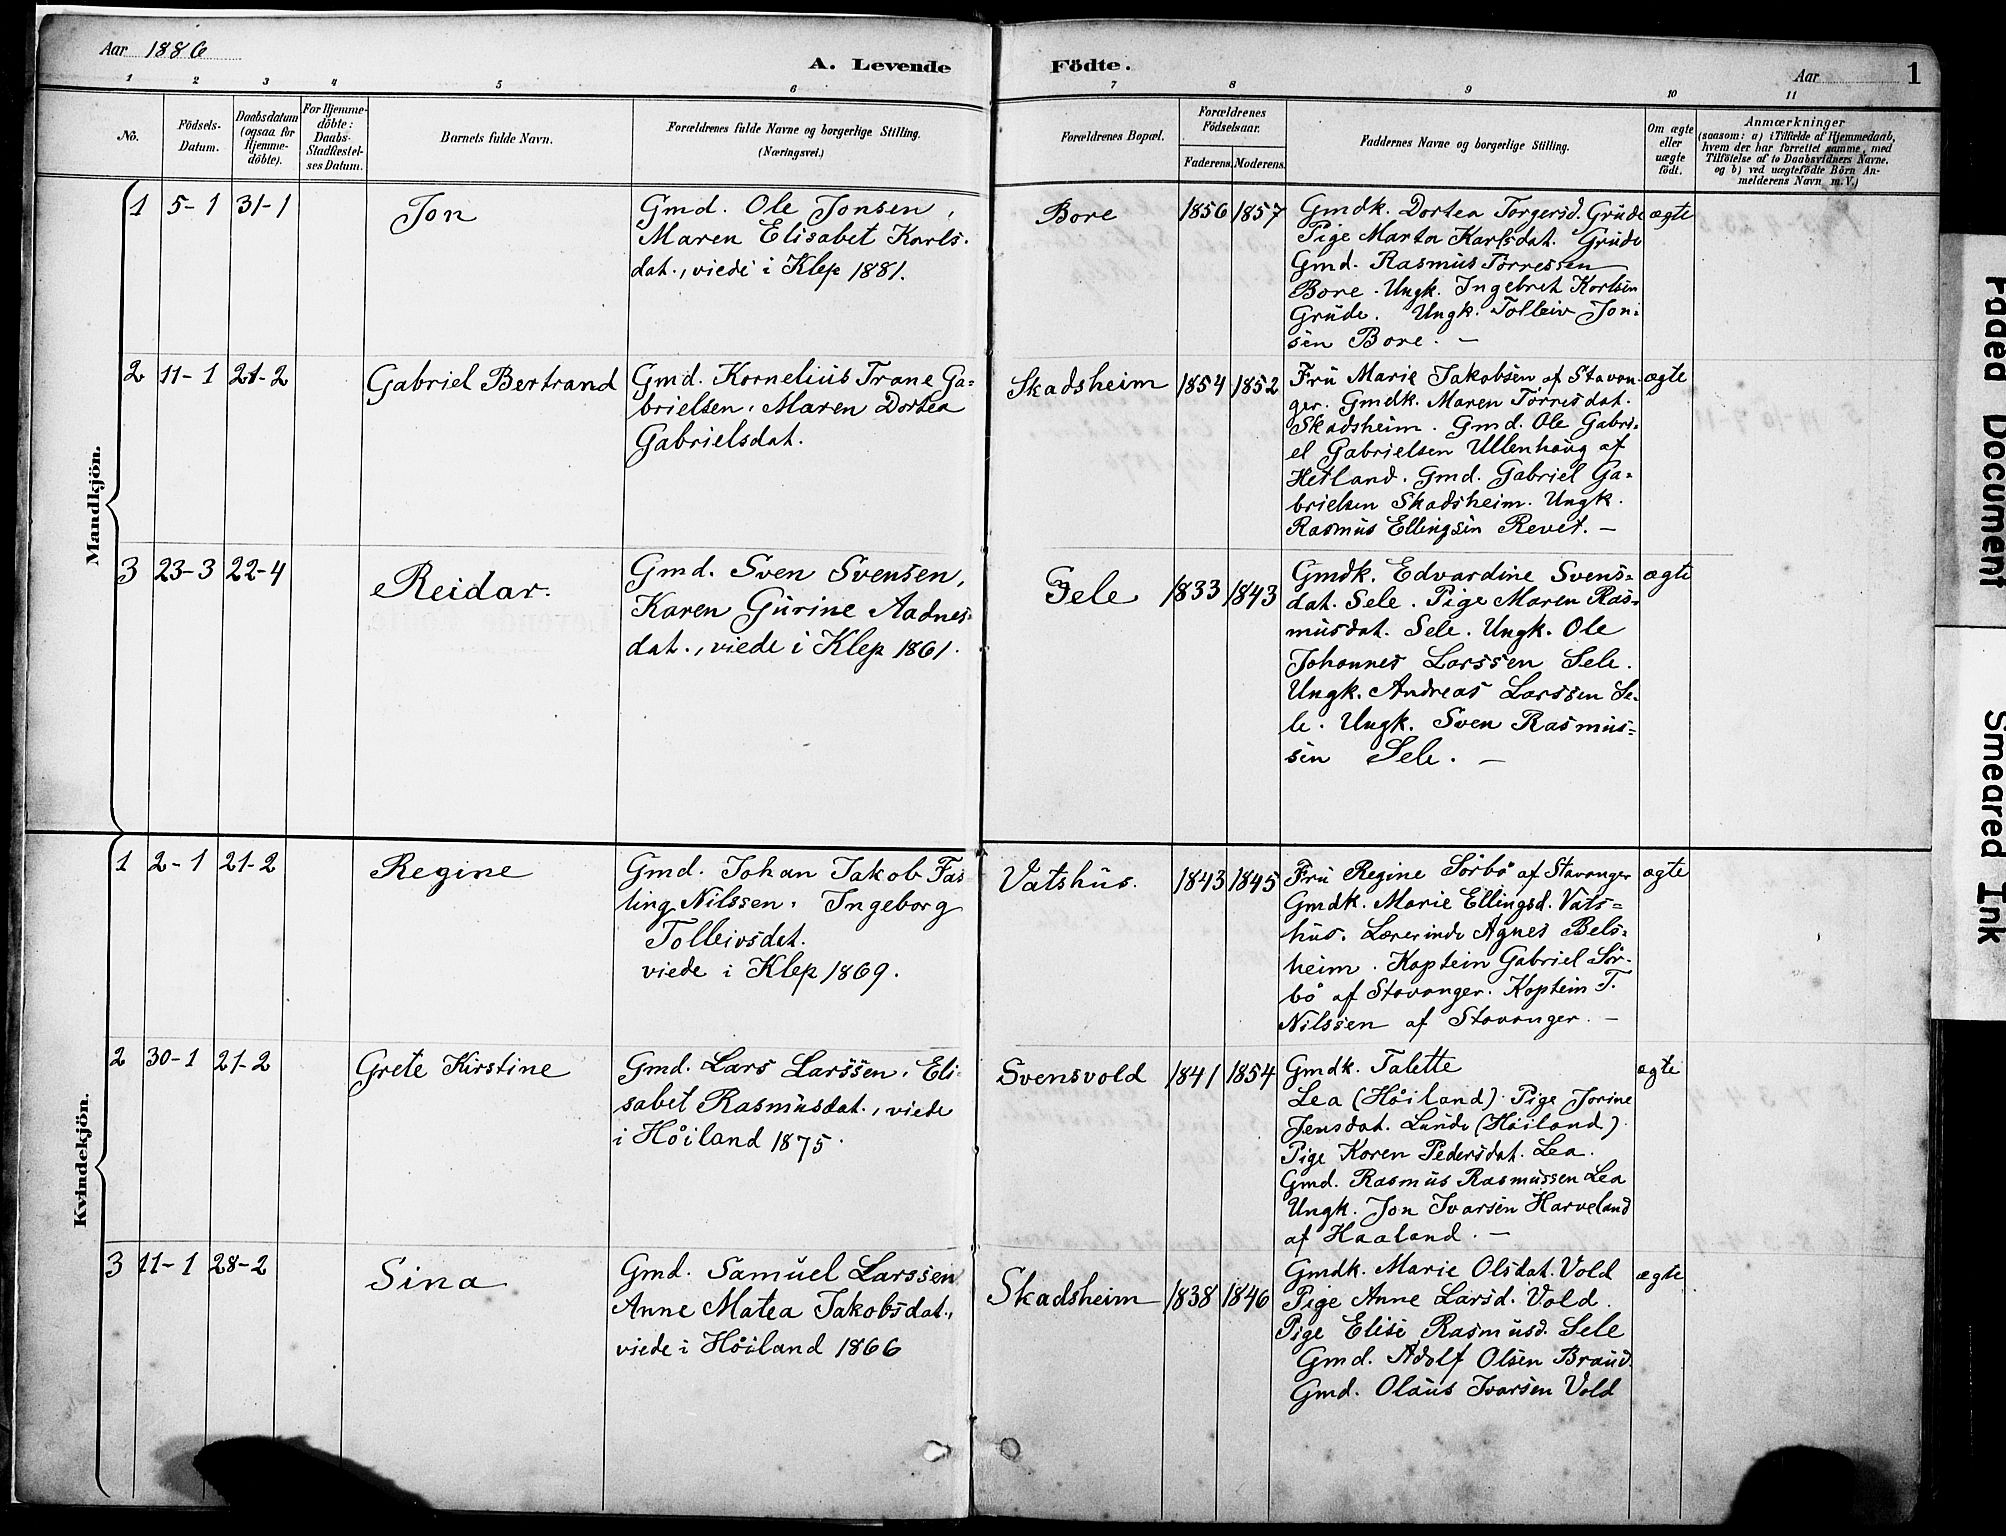 Aar 1886
A. Levende Födte.
Aar 1
1 2 3 4 5 6 7 8 9 10 11
No.
Födsels-
Datum.
Daabsdatum
(ogsaa for
Hjemme-
döbte).
For Hjemme-
döbte:
Daabs-
Stadfæstel-
ses Datum.
Barnets fulde Navn.
Forældrenes fulde Navne og borgerlige Stilling.
(Næringsvei.)
Forældrenes Bopæl.
Forældrenes
Födselsaar.
Faderens. Moderens.
Faddernes Navne og borgerlige Stilling.
Om ægte
eller
uægte
født.
Anmærkninger
(saasom: a) i Tilfælde af Hjemmedaab,
hvem der har forrettet samme, med
Tilföielse af to Daabsvidners Navne.
og b) ved uægtefödte Börn An-
melderens Navn m.V.)
Mandkjön.
1 5-1 31-1
Jon
Gmd. Ole Jonsen,
Maren Elisabet Karls-
dat., viede i Klep 1881.
Bore
1856 1857
Gmdk. Dortea Torgersd. Grude
Pige Marta Karlsdat. Grude
Gmd. Rasmus Torressen
Bore. Ungk. Ingebret Karlsen
Grude. Ungk. Tolleiv Jon-
sen Bore. —
ægte
2 11-1 21-2
Gabriel Bertrand
Gmd. Kornelius Trane Ga=
brielsen, Maren Dortea
Gabrielsdat.
Skadsheim
1854 1852
Fru Marie Jakobsen af Stavan-
ger. Gmdk. Maren Torresdat.
Skadsheim. Gmd. Ole Gabri=
el Gabrielsen Ullenhaug af
Hetland. Gmd. Gabriel Ga=
brielsen Skadsheim. Ungk.
Rasmus Ellingsen Revet. —
ægte
3 23-3 22-4
Reidar.
Gmd. Sven Svensen,
Karen Gurine Aadnes-
dat., viede i Klep 1861.
Sele
1833 1843
Gmdk. Edvardine Svens=
dat. Sele. Pige Maren Ras=
musdat. Sele. Ungk. Ole
Johannes Larssen Sele.
Ungk. Andreas Larssen Se-
le. Ungk. Sven Rasmus=
sen Sele. —
ægte
Kvindekjön.
1 2-1 21-2
Regine
Gmd. Johan Jakob Fas-
ting Nilssen, Ingeborg
Tolleivsdat.
viede i Klep 1869.
Vatshus.
1843 1845
Fru Regine Sörbö af Stavanger
Gmdk. Marie Ellingsd. Vats=
hus. Lærerinde Agnes Bels=
heim. Kaptein Gabriel Sör-
bö af Stavanger. Kaptein T.
Nilssen af Stavanger. —
ægte
2 30-1 21-2
Grete Kirstine
Gmd. Lars Larssen, Eli-
sabet Rasmusdat., viede
i Höiland 1875.
Svensvold
1841 1854
Gmdk. Talette
Lea (Höiland). Pige Jorine
Jensdat. Lunde (Höiland).
Pige Karen Pedersdat. Lea.
Gmd. Rasmus Rasmussen Lea
Ungk. Jon Ivarsen Harveland
af Haaland. —
ægte
3 11-1 28-2
Sina
Gmd. Samuel Larssen
Anne Matea Jakobsdat.,
viede i Höiland 1866
Skadsheim
1838 1846
Gmdk. Marie Olsdat. Vold
Pige Anne Larsd. Vold.
Pige Elise Rasmusd. Sele
Gmd. Adolf Olsen Braud.
Gmd. Olaus Ivarsen Vold
ægte
Faded Document
Smeared Ink